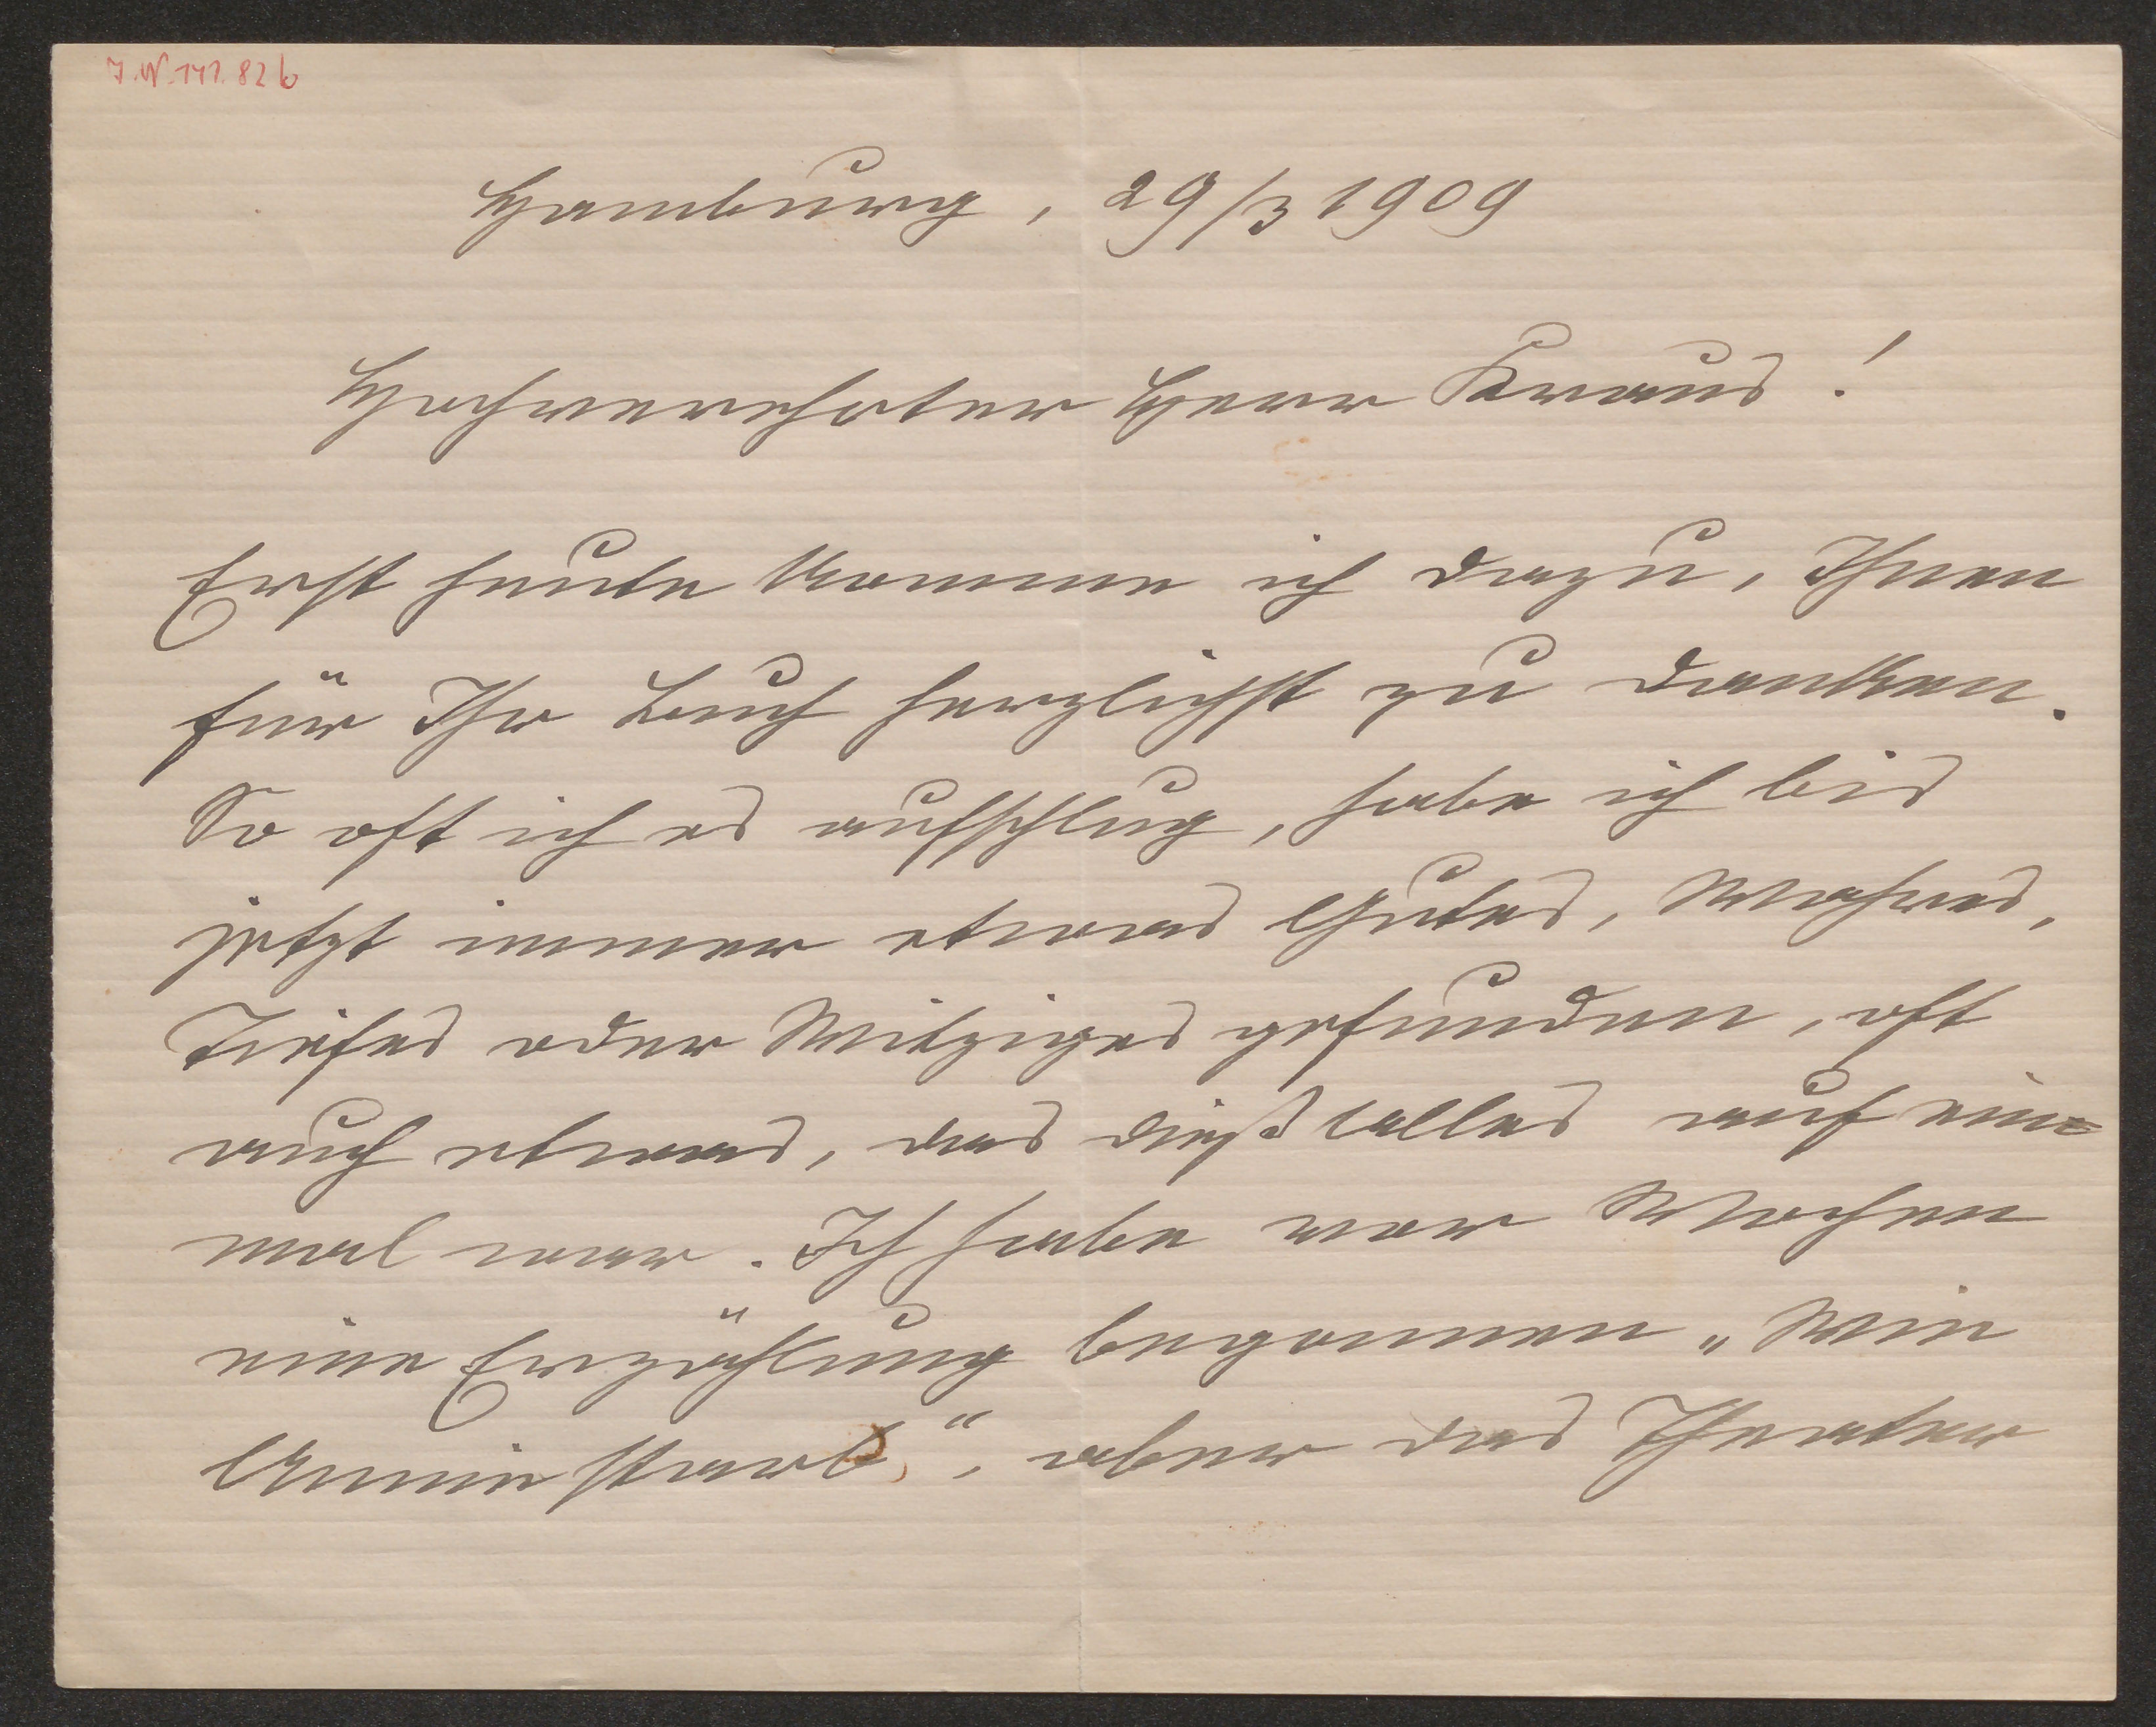 I.N. 141.826
Hamburg, 29/3 1909
Hochverehrter Herr Kraus!
Erst heute komme ich dazu, Ihnen
für Ihr Buch herzlichst zu danken.
So oft ich es aufschlug, habe ich bis
jetzt immer etwas Gutes, Wahres,
Tiefes oder Witziges gefunden, oft
auch etwas, das dieß alles auf ein=
mal war. Ich habe vor Wochen
eine Erzählung begonnen „Wie
starb“, aber das Theater